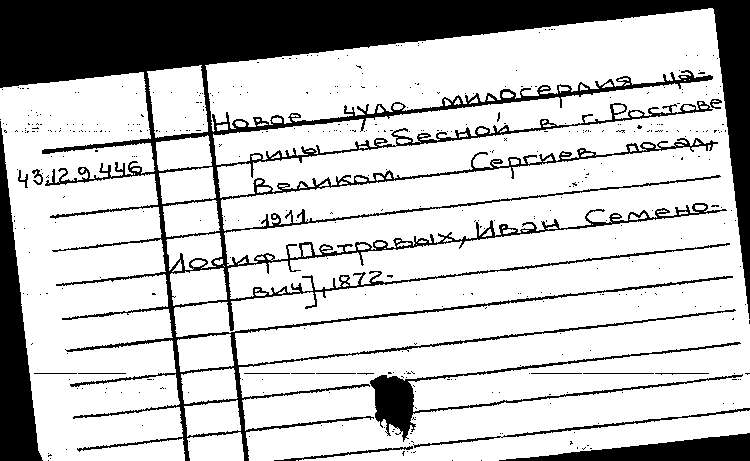 Новое чудо милосердия ца-
рицы небесной в г. Ростове
43.12.9.446
Великом. Сергиев посад,
1911.
Иосиф [Петровых, Иван Семено-
вич], 1872-